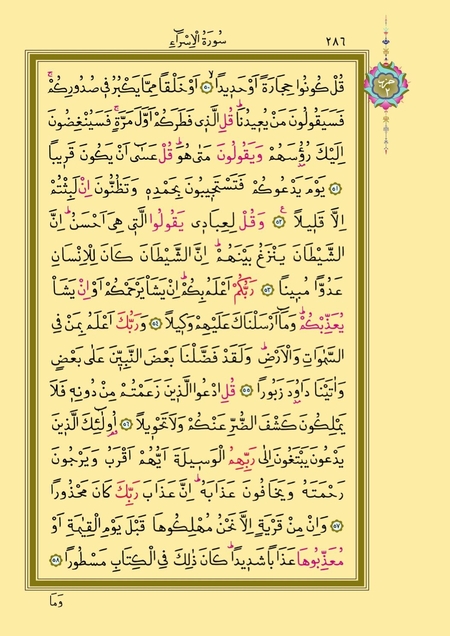 سُورَةُ الْاِسْرَٓاءِ ٢٨٦
قُلْ كُونُوا حِجَارَةً اَوْ حَد۪يدًاۙ ﴿٥٠﴾ اَوْ خَلْقًا مِمَّا يَكْبُرُ ف۪ي صُدُورِكُمْۚ
فَسَيَقُولُونَ مَنْ يُع۪يدُنَاۜ قُلِ الَّذ۪ي فَطَرَكُمْ اَوَّلَ مَرَّةٍۚ فَسَيُنْغِضُونَ
اِلَيْكَ رُؤُ۫سَهُمْ وَيَقُولُونَ مَتٰى هُوَۜ قُلْ عَسٰٓى اَنْ يَكُونَ قَر۪يبًا
﴿٥١﴾ يَوْمَ يَدْعُوكُمْ فَتَسْتَج۪يبُونَ بِحَمْدِه۪ وَتَظُنُّونَ اِنْ لَبِثْتُمْ
اِلَّا قَل۪يلًا۟ ﴿٥٢﴾ وَقُلْ لِعِبَاد۪ي يَقُولُوا الَّت۪ي هِيَ اَحْسَنُۜ اِنَّ
الشَّيْطَانَ يَنْزَغُ بَيْنَهُمْۜ اِنَّ الشَّيْطَانَ كَانَ لِلْاِنْسَانِ
عَدُوًّا مُب۪ينًا ﴿٥٣﴾ رَبُّكُمْ اَعْلَمُ بِكُمْۜ اِنْ يَشَأْ يَرْحَمْكُمْ اَوْ اِنْ يَشَأْ
يُعَذِّبْكُمْۜ وَمَٓا اَرْسَلْنَاكَ عَلَيْهِمْ وَك۪يلًا ﴿٥٤﴾ وَرَبُّكَ اَعْلَمُ بِمَنْ فِي
السَّمٰوَاتِ وَالْاَرْضِۜ وَلَقَدْ فَضَّلْنَا بَعْضَ النَّبِيّ۪نَ عَلٰى بَعْضٍ
وَاٰتَيْنَا دَاوُ۫دَ زَبُورًا ﴿٥٥﴾ قُلِ ادْعُوا الَّذ۪ينَ زَعَمْتُمْ مِنْ دُونِه۪ فَلَا
يَمْلِكُونَ كَشْفَ الضُّرِّ عَنْكُمْ وَلَا تَحْو۪يلًا ﴿٥٦﴾ اُو۬لٰٓئِكَ الَّذ۪ينَ
يَدْعُونَ يَبْتَغُونَ اِلٰى رَبِّهِمُ الْوَس۪يلَةَ اَيُّهُمْ اَقْرَبُ وَيَرْجُونَ
رَحْمَتَهُ وَيَخَافُونَ عَذَابَهُۜ اِنَّ عَذَابَ رَبِّكَ كَانَ مَحْذُورًا
﴿٥٧﴾ وَاِنْ مِنْ قَرْيَةٍ اِلَّا نَحْنُ مُهْلِكُوهَا قَبْلَ يَوْمِ الْقِيٰمَةِ اَوْ
مُعَذِّبُوهَا عَذَابًا شَد۪يدًاۜ كَانَ ذٰلِكَ فِي الْكِتَابِ مَسْطُورًا ﴿٥٨﴾
وَمَا